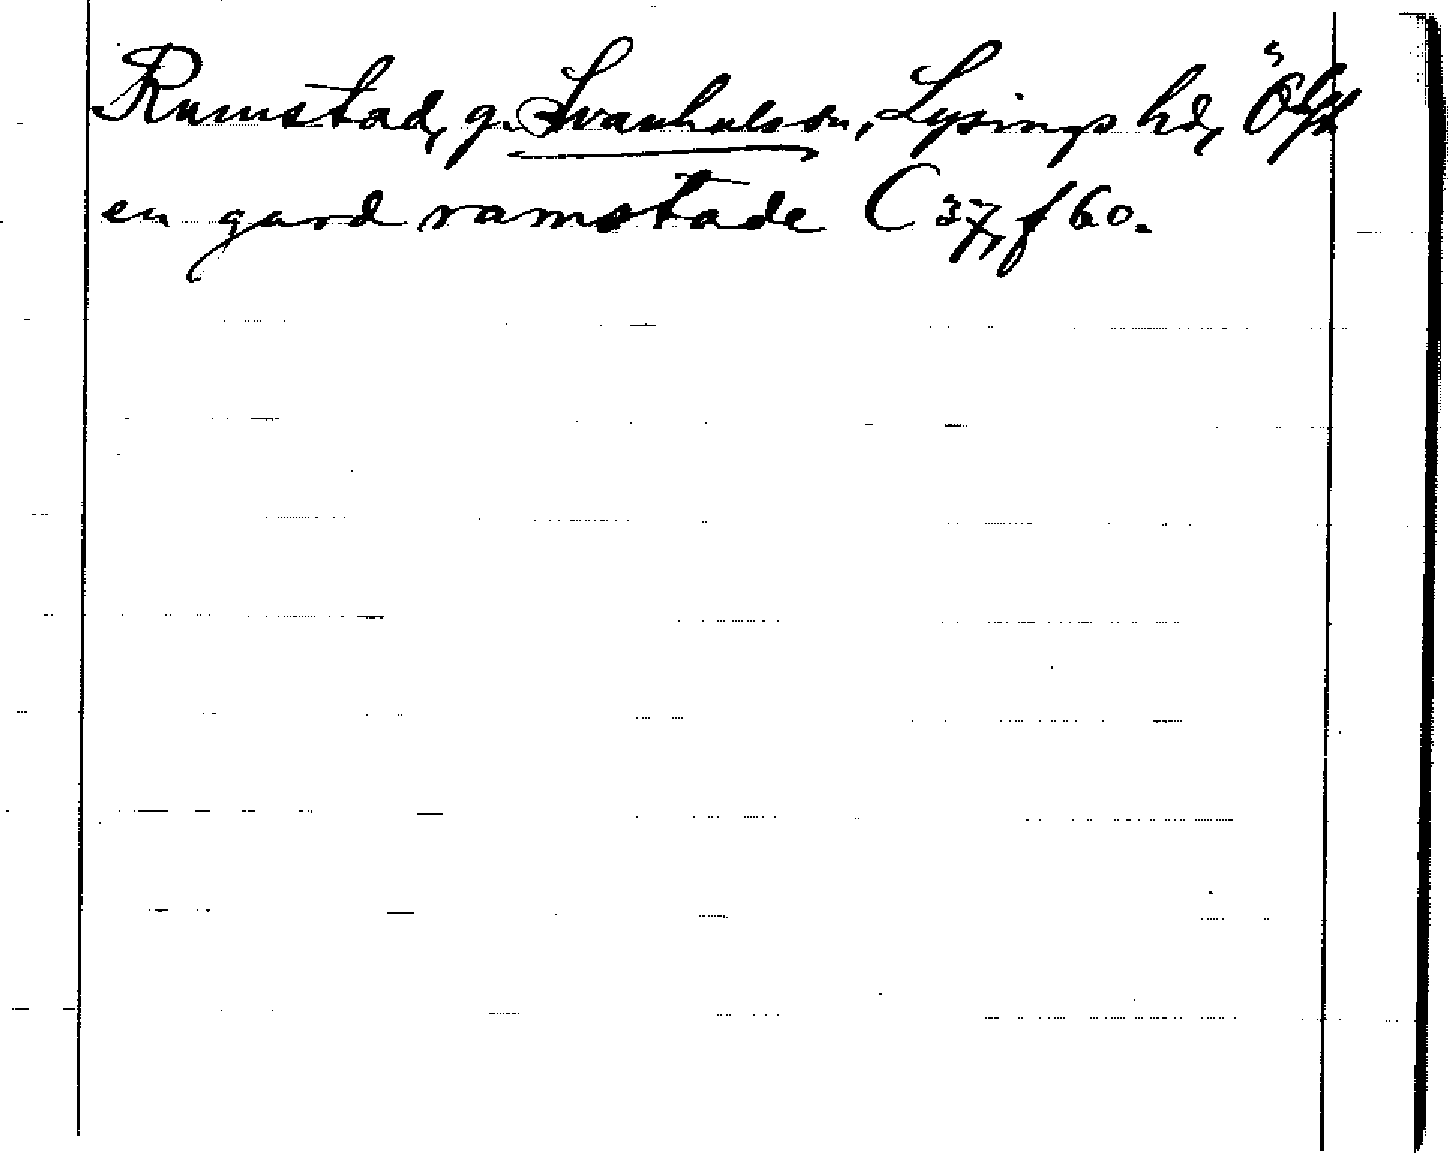 Ramstad, g. Svanhals sn, Lysings hd, Ögl
en gard ramstade C 37, f 60.